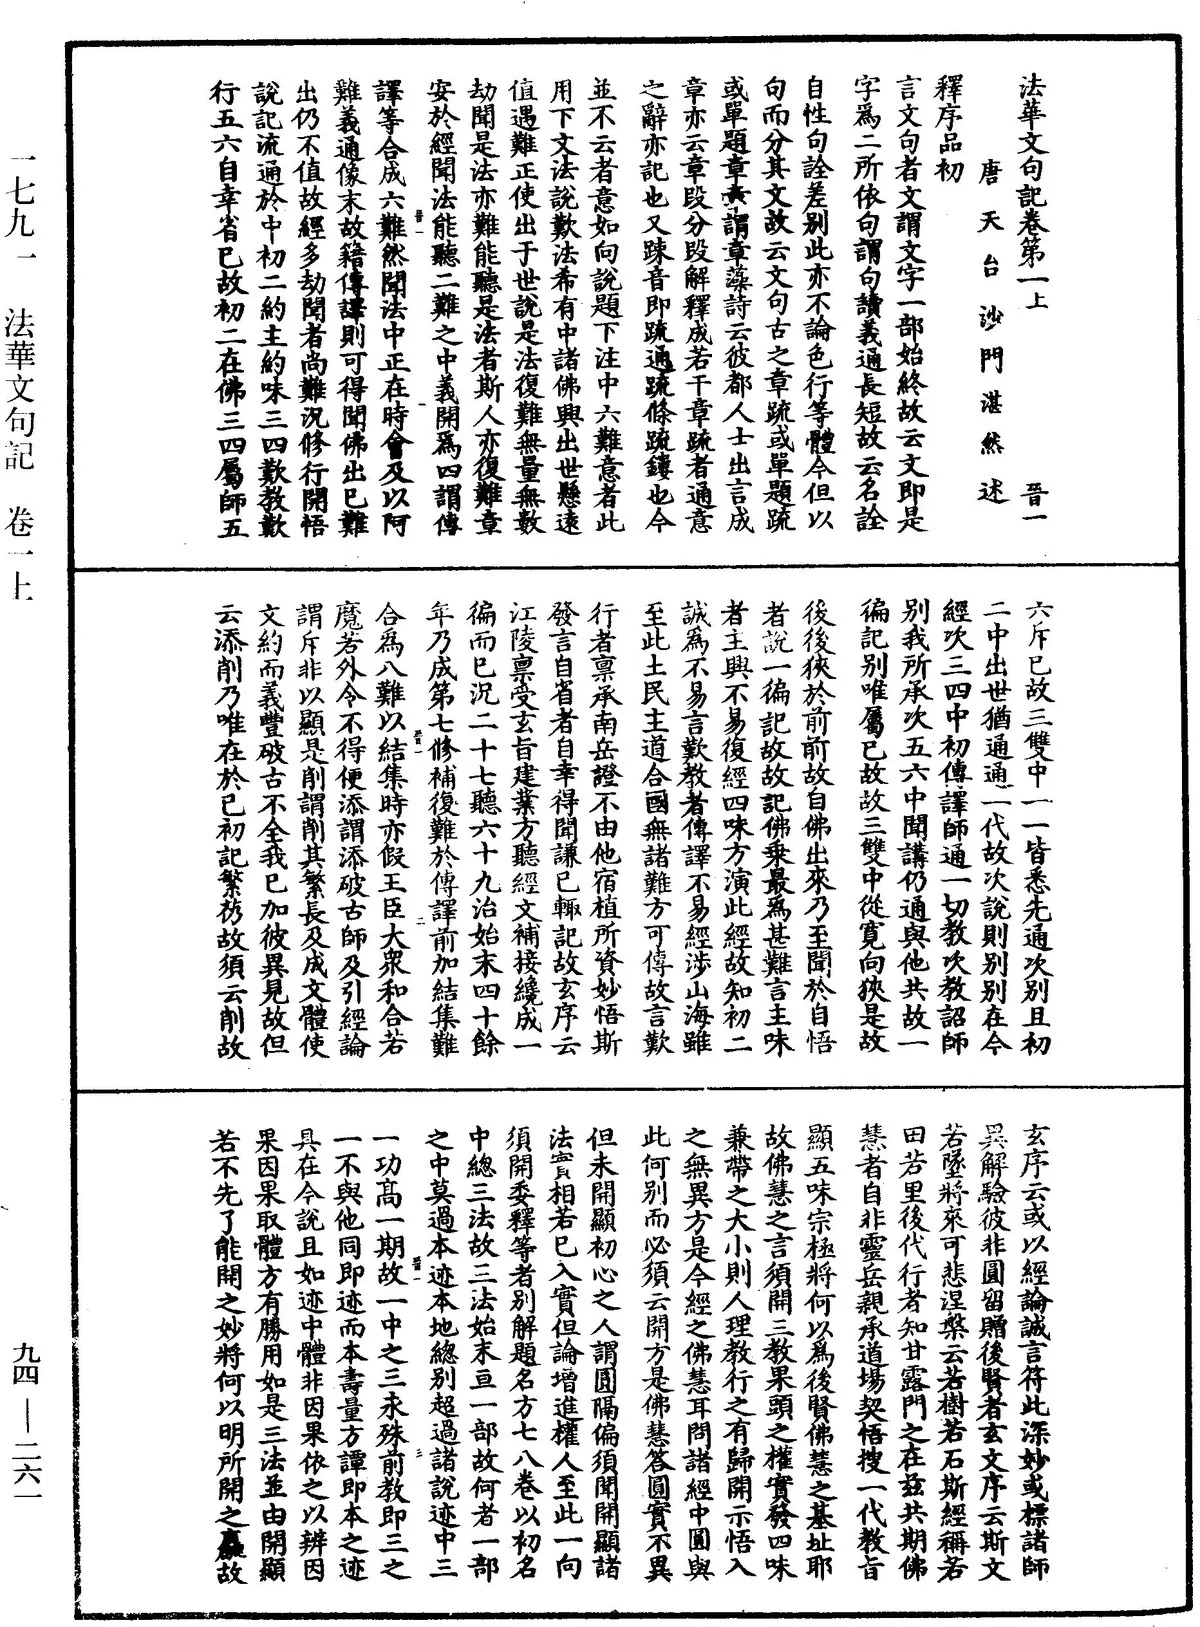 法華文句記卷第一上　　晉一
唐天台沙門湛然述
釋序品初
言文句者文謂文字一部始終故云文即是
字爲二所依句謂句讀義通長短故云名詮
自性句詮差別此亦不論色行等體今但以
句而分其文故云文句古之章疏或單題疏
或單題章章謂章藻詩云彼都人士出言成
章亦云章段分段解釋成若干章疏者通意
之辭亦記也又踈音即疏通疏條疏鏤也今
並不云者意如向說題下注中六難意者此
用下文法說歎法希有中諸佛興出世懸遠
值遇難正使出于世說是法復難無量無數
劫聞是法亦難能聽是法者斯人亦復難章
安於經聞法能聽二難之中義開爲四謂傳
譯等合成六難然聞法中正在時會及以阿
難義通像末故籍傳譯則可得聞佛出已難
出仍不值故經多劫聞者尚難況修行開悟
說記流通於中初二約主約味三四歎教歎
行五六自幸省已故初二在佛三四屬師五
六斥已故三雙中一一皆悉先通次別且初
二中出世猶通通一代故次說則別別在今
經次三四中初傳譯師通一切教次教詔師
別我所承次五六中聞講仍通與他共故一
徧記別唯屬已故故三雙中從寬向狹是故
後後狹於前前故自佛出來乃至聞於自悟
者說一徧記故故記佛乗最爲甚難言主味
者主興不易復經四味方演此經故知初二
誠爲不易言歎教者傳譯不易經涉山海雖
至此土民主道合國無諸難方可傳故言歎
行者稟承南岳證不由他宿植所資妙悟斯
發言自省者自幸得聞謙已輙記故玄序云
江陵稟受玄旨建業方聽經文補接纔成一
徧而已況二十七聽六十九治始末四十餘
年乃成第七修補復難於傳譯前加結集難
合爲八難以結集時亦假王臣大衆和合若
魔若外令不得便添謂添破古師及引經論
謂斥非以顯是削謂削其繁長及成文體使
文約而義豐破古不全我已加彼異見故但
云添削乃唯在於已初記繁芿故須云削故
玄序云或以經論誠言符此深妙或標諸師
異解驗彼非圓留贈後賢者玄文序云斯文
若墜將來可悲涅槃云若樹若石斯經稱若
田若里後代行者知甘露門之在茲共期佛
慧者自非靈岳親承道場契悟搜一代教旨
顯五味宗極將何以爲後賢佛慧之基址耶
故佛慧之言須開三教果頭之權實發四味
兼帶之大小則人理教行之有歸開示悟入
之無異方是今經之佛慧耳問諸經中圓與
此何別而必須云開方是佛慧答圓實不異
但未開顯初心之人謂圓隔偏須聞開顯諸
法實相若已入實但論增進權人至此一向
須開委釋等者別解題名方七八卷以初名
中總三法故三法始末亘一部故何者一部
之中莫過本迹本地總別超過諸說迹中三
一功高一期故一中之三永殊前教即三之
一不與他同即迹而本壽量方譚即本之迹
具在今說且如迹中體非因果依之以辨因
果因果取體方有勝用如是三法並由開顯
若不先了能開之妙將何以明所開之麤故
一七九一　法華文句記　卷一上
九四—二六一